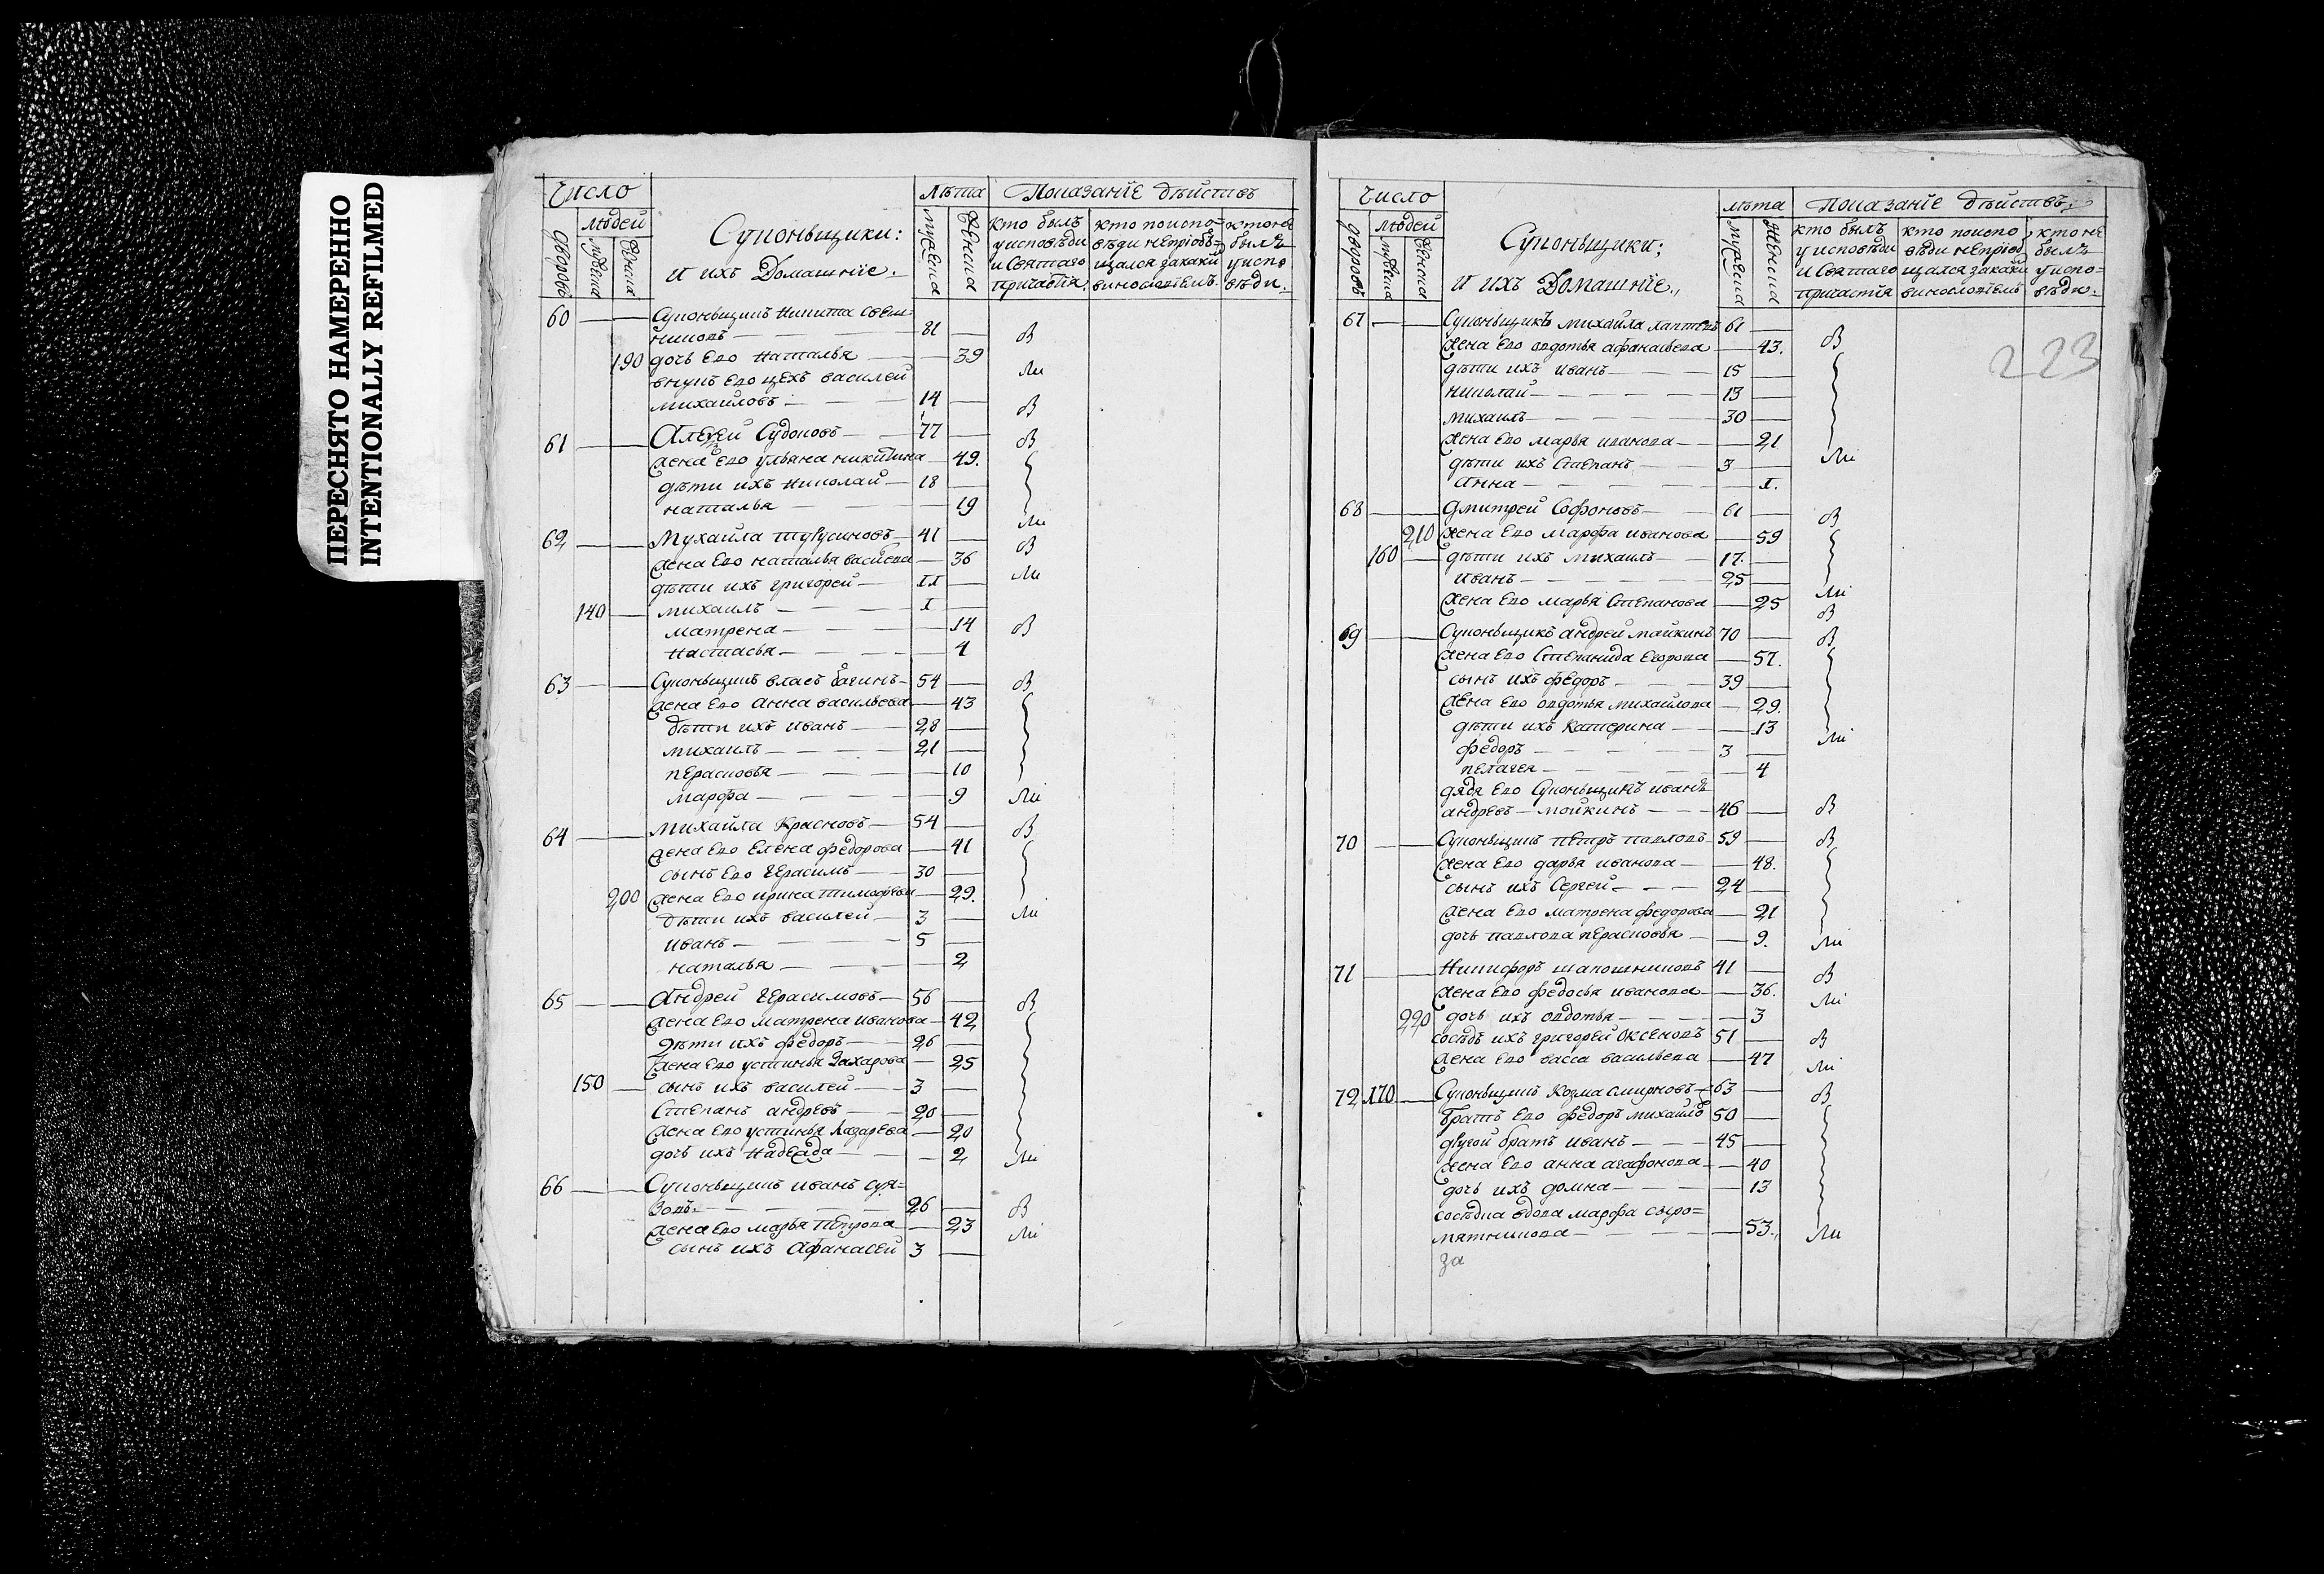 ПЕРЕСНЯТО НАМЕРЕННО
INTENTIONALLY REFILMED
Число
людей
дворовъ
мужеска
женска
Суконьщики:
и ихъ Домашніе.
Лѣта
мужеска
женска
Показаніе дѣйствъ
кто былъ
у исповѣди
и Святаго
причастія.
кто по испо
вѣди непріобъ=
щался за какй
винословіемъ.
кто не
былъ
у испо
вѣди.
60 Суконьщикъ Никита Свеш
никовъ 81 В
190 дочь Ево Наталья 39
внукъ Ево цехъ василей Ли
михайловъ 14 В
61 Алеѯей Судоковъ 77 В
жена Ево ульяна никитина 49.
дѣти ихъ Николай 18
наталья 19 Ли
62 Михайла 41 В
жена Ево наталья 36
дѣти ихъ григорей II Ли
140 михаилъ I
матрена 14 В
Настасья 4
63 Суконьщикъ власъ 54 В
жена Ево Анна васильева 43
дѣти ихъ иванъ 28
михаилъ 21
перасковья 10
марфа 9 Ли
64 михайла Красновъ 54 В
жена Ево Елена федорова 41
сынъ Ево Герасимъ 30
200 жена Ево ирина тимофѣева 29.
дѣти ихъ василей 3 Ли
иванъ 5
наталья 2
65 Андрей Герасимовъ 56 В
жена Ево матрена иванова 42
дѣти ихъ федоръ 26
жена Ево устинья Захарова 25
150 сынъ ихъ василей 3
Степанъ андревъ 20
жена Ево устинья Лазарева 20
дочь ихъ Надежда 2 Ли
66 Суконьщикъ иванъ суя=
зовъ 26 В
жена Ево марья Петрова 23 Ли
сынъ ихъ Афанасей 3
Число
людей
дворовъ
мужеска
женска
Суконьщики;
и ихъ Домашніе.,
лѣта
мужеска
женска
Показаніе дѣйствъ;
кто былъ
у исповѣди
и Святаго
причастія
кто по испо
вѣди непріоб
щался за какй
винословіемъ
кто не
былъ
у испо=
вѣди.
223
67 Суконьщикъ михайла лаптевъ 61 В
жена Ево овдотья афанасьева 43.
дѣти ихъ иванъ 15
николай 13
михаилъ 30
жена Ево марья иванова 21
дѣти ихъ Степанъ 3 Ли
Анна I.
68 Дмитрей Софоновъ 61 В
210 жена Ево марфа иванова 59
160 дѣти ихъ михаилъ 17.
иванъ 25 Ли
жена Ево марья Степанова 25 В
69 Суконьщикъ андрей майкинъ 70 В
жена Ево Степанида Егорова 57.
сынъ ихъ федоръ 39
жена Ево овдотья михайлова 29.
дѣти ихъ Катерина 13 Ли
федоръ 3
пелагея 4
дядя Ево Суконьщикъ иванъ
андревъ мойкинъ 46 В
70 Суконьщикъ петръ павловъ 59 В
жена Ево дарья иванова 48.
сынъ ихъ Сергей 24
жена Ево матрена федорова 21
дочь павлова перасковья 9. Ли
71 Никифоръ шапошниковъ 41 В
жена Ево федосья иванова 36. Ли
220 дочь ихъ овдотья 3
сосѣдъ ихъ григорей Оксеновъ 51 В
жена Ево васса васильева 47 Ли
72 170 Суконьщикъ Козма смирновъ 63 В
братъ Ево федоръ михайлъ 50
другой братъ иванъ 45
жена Ево анна агафонова 40
дочь ихъ домна 13
сосѣдка вдова марфа сыро=
мятникова 53., Ли
За